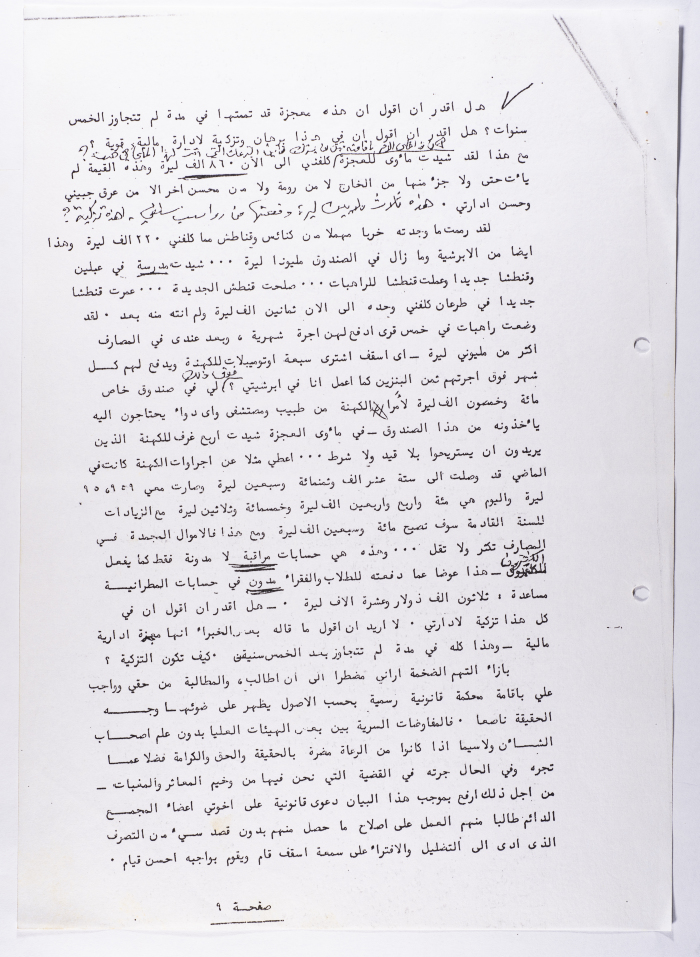 هل اقدر ان اقول ان هذه معجزة قد تمتها في مدة لم تتجاوز الخمس
سنوات ؟ هل اقدر ان اقول ان في هذا برهان وتزكية لادارة مالية قوية ؟
مع هذا لقد شيدت مأوى للعجزة كلفني الى الان ٨٦٠ الف ليرة وهذه القيمة لم
يأت حتى ولا جزء منها من الخارج لا من رومة ولا من محسن آخر الا من عرق جبيني
وحسن ادارتي . هذه ثلاث ملايين ليرة
لقد رممت ما وجدته خربا مهملا من كنائس وقناطش مما كلفني ٢٢٠ الف ليرة وهذا
ايضا من الابرشية وما زال في الصندوق مليونا ليرة ٠٠٠ شيدت مدرسة في عبلين
وقنطشا جديدا وعملت قنطشا للراهبات ٠٠٠ صلحت قنطش الجديدة ٠٠٠ عمرت قنطشا
جديدا في طرعان كلفني وحده الى الان ثمانين الف ليرة ولم انته منه بعد ٠ لقد
وضعت راهبات في خمس قرى ادفع لهن اجرة شهرية ، وبعد عندي في المصارف
أكثر من مليوني ليرة — اى اسقف اشترى سبعة اوتوميبلات للكهنة ويدفع لهم كـــل
شهر فوق اجرتهم ثمن البنزين كما اعمل انا في ابرشيتي ؟ فوق ذلك لي في صندوق خاص
مائة وخمسون الف ليرة لأمراض الكهنة من طبيب ومستشفى واى دواء يحتاجون اليه
يأخذونه من هذا الصندوق — في مأوى العجزة شيدت اربع غرف للكهنة الذين
يريدون ان يستريحوا بلا قيد ولا شرط ٠٠٠ اعطي مثلا عن اجراوات الكهنة كانت في
الماضي قد وصلت الى ستة عشر الف وثمنمائة وسبعين ليرة وصارت معي ٩٥٦٩٥٩
ليرة واليوم هي مئة واربع واربعين الف ليرة وخمسمائة وثلاثين ليرة مع الزيادات
للسنة القادمة سوف تصبح مائة وسبعين الف ليرة ومع هذا فالاموال المجمدة فـــي
المصارف تكثر ولا تقل ٠٠٠ وهذه هي حسابات مراقبة لا مدونة فقط كما يفعل
الكثيرون — هذا عوضا عما دفعته للطلاب والفقراء مدون في حسابات المطرانيـــة
مساعدة ، ثلاثون الف دولار وعشرة الاف ليرة ٠ — هل اقدر ان اقول ان في
كل هذا تزكية لادارتي ٠ لا اريد ان اقول ما قاله بعض الخبراء انها معجزة ادارية
مالية — وهذا كله في مدة لم تتجاوز بعد الخمس سنين ٠ كيف تكون التزكية ؟
بازاء التهم الضخمة اراني مضطرا الى ان اطالب ، والمطالبة من حقي وواجب
علي باقامة محكمة قانونية رسمية بحسب الاصول يظهر على ضوئهـــا وجـــــه
الحقيقة ناصعا ٠ فالمفاوضات السرية بين بعض الهيئات العليا بدون علم اصحـــاب
الشــأن ولا سيما اذا كانوا من الرعاة مضرة بالحقيقة والحق والكرامة فضلا عمـــا
تجره وفي الحال جرته في القضية التي نحن فيها من وخيم المعاثر والمغبات —
من اجل ذلك ارفع بموجب هذا البيان دعوى قانونية على اخوتي اعضاء المجمـــع
الدائم طالبا منهم العمل على اصلاح ما حصل منهم بدون قصد سيء من التصرف
الذى ادى الى التضليل والافتراء على سمعة اسقف قام ويقوم بواجبه احسن قيام ٠
صفحــة ٩